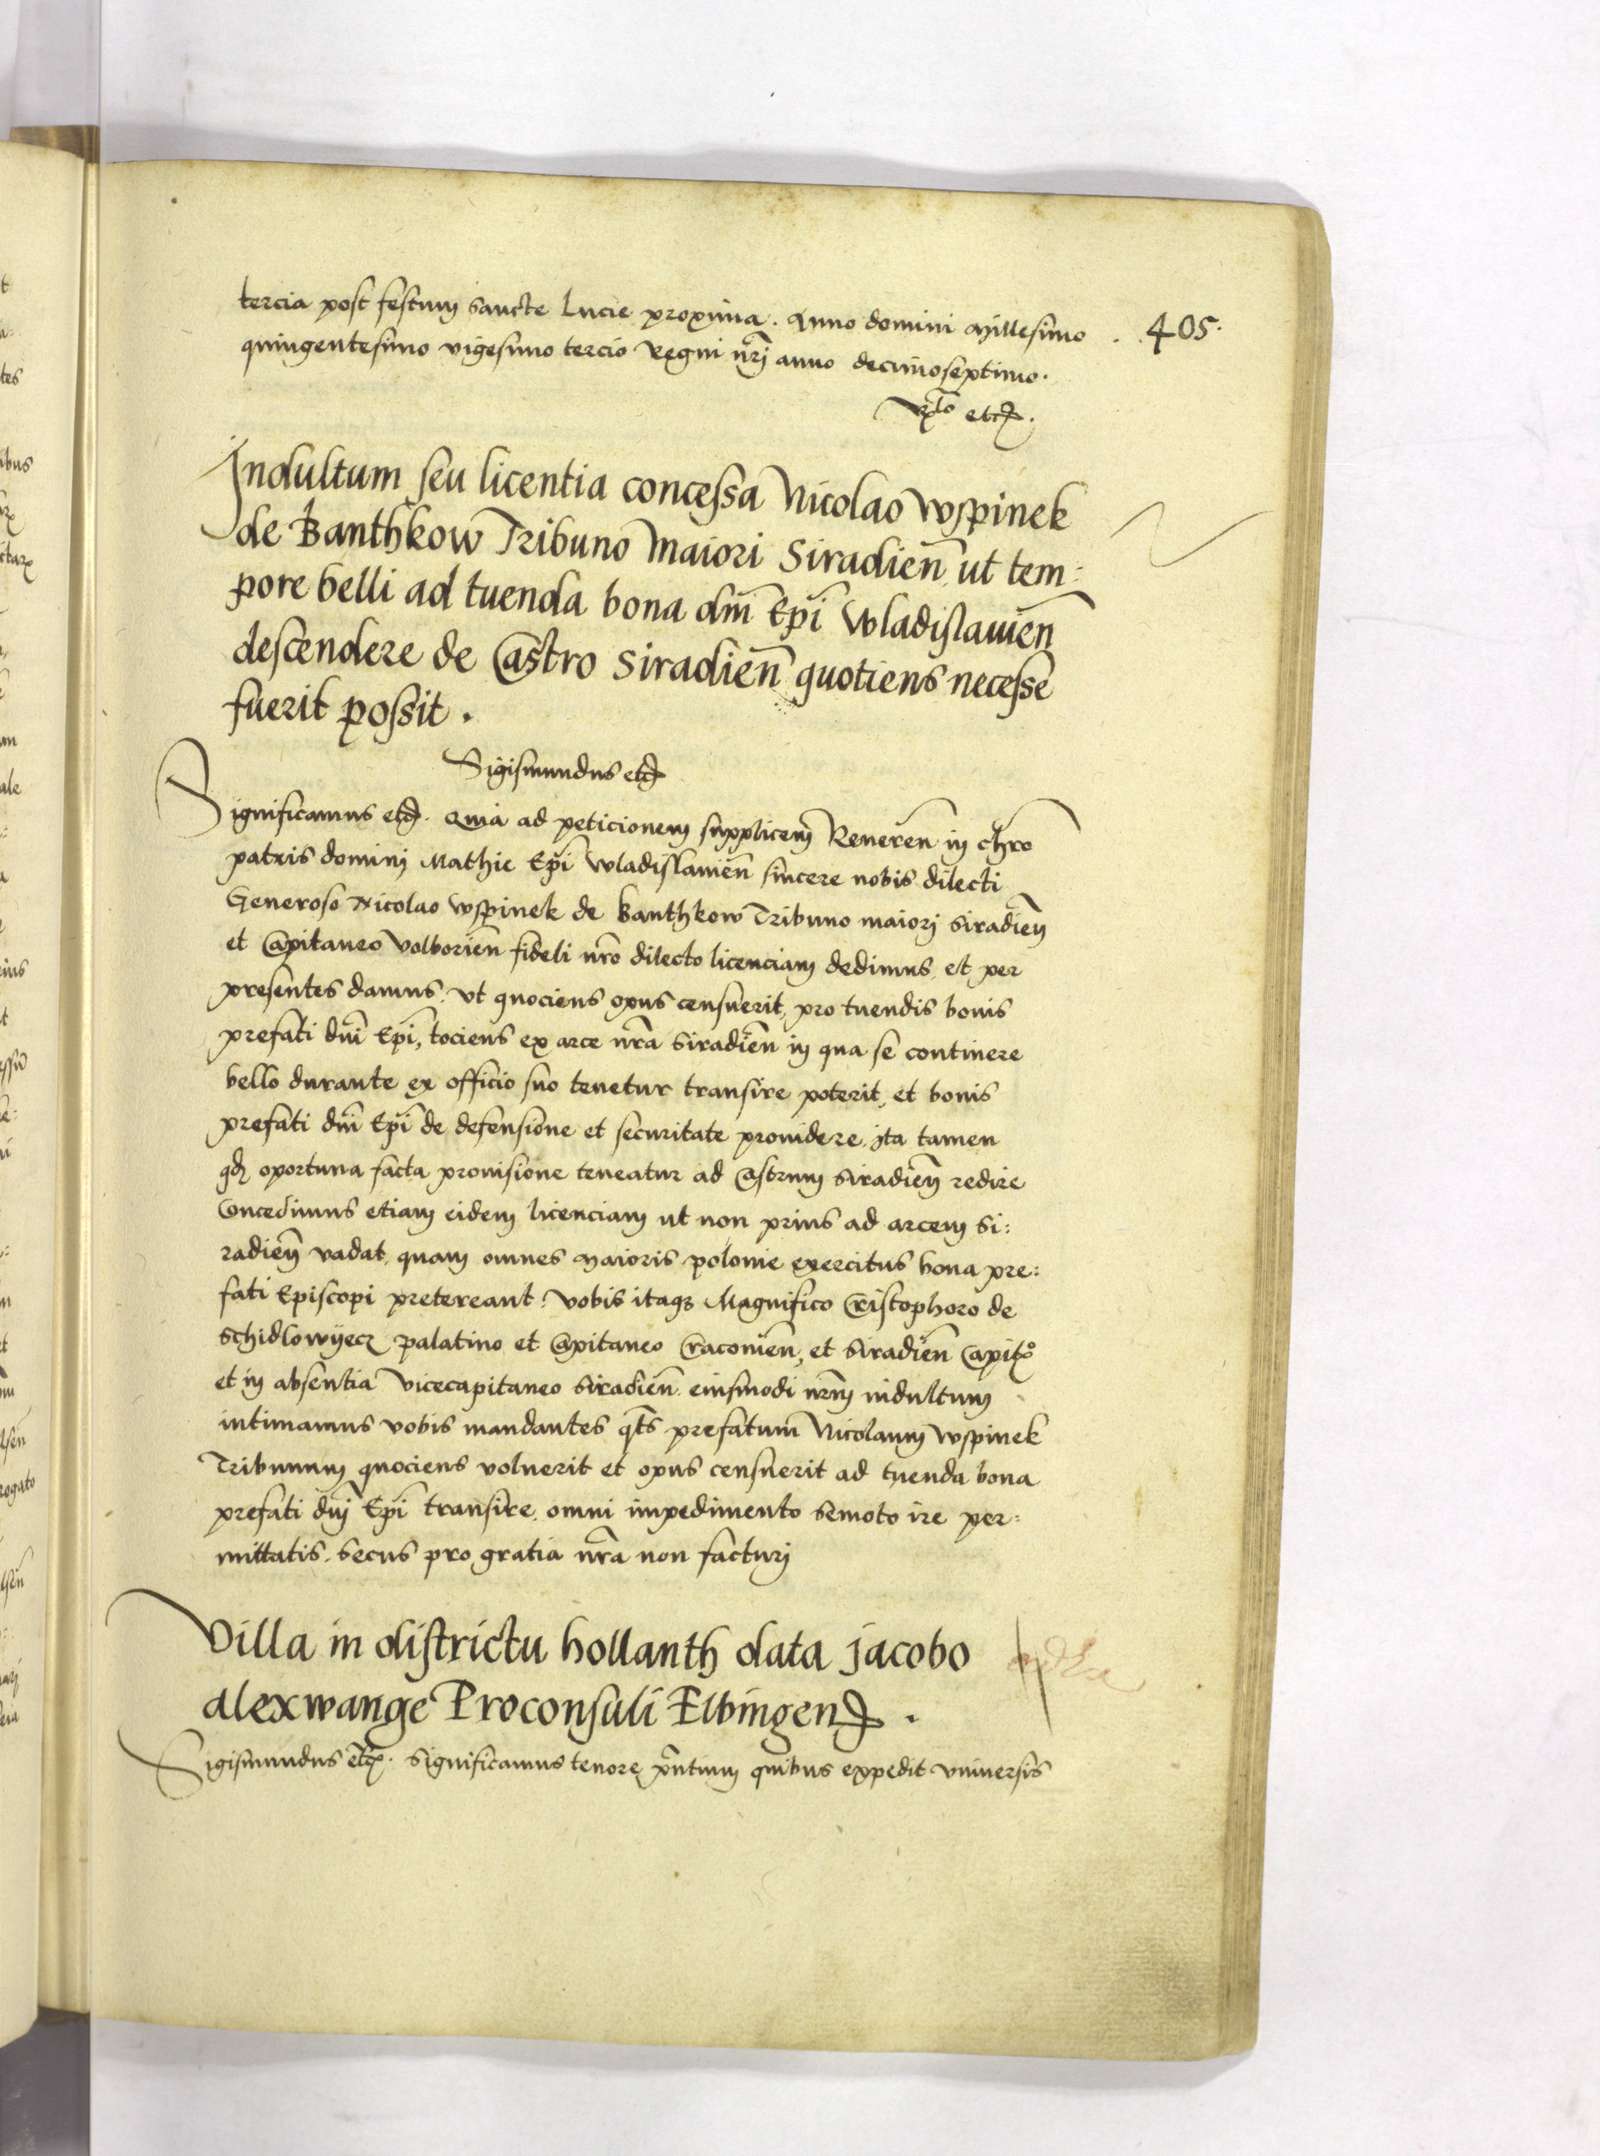 tercia post festum sancte Lucie proxima. Anno domini Millesimo
405.
quingentesimo vigesimo tercio Regni nrj anno decimoseptimo.
etc.
Indultum seu licentia concessa Nicolao Wspinek
de Banthkow Tribuno Maiori Siradien ut tem:
pore belli ad tuenda bona dm Epi Wladislauien
descendere de Castro Siradien quotiens necesse
fuerit possit.
Sigismundus etc
Significamus etc. Quia ad peticionem supplicem Reueren in chro
patris dominj Mathie Epi Wladislauien sincere nobis dilecti
Generoso Nicolao Wspinek de Banthkow Tribuno maiorj Siradien
et Capitaneo Volborien fideli nro dilecto licenciam dedimus, et per
presentes damus. Vt quociens opus censuerit, pro tuendis bonis
prefati dni Epi, tociens ex arce nra Siradien in qua se continere
bello durante ex officio suo tenetur transire poterit, et bonis
prefati dni Epi de defensione et securitate prouidere. Ita tamen
qd oportuna facta prouisione teneatur ad Castrum Siradien redire
Concedimus etiam eidem licenciam ut non prius ad arcem Si:
radien vadat, quam omnes Maioris polonie exercitus bona pre:
fati Episcopi pretereant. Vobis itaqz Magnifico Cristophoro de
Schidlowijecz palatino et Capitaneo Cracouien, et Siradien Capito
et in absentia Vicecapitaneo Siradien. eiusmodi nrm indultum
intimamus vobis mandantes qts prefatum Nicolaum Wspinek
Tribunum quociens voluerit et opus censuerit ad tuenda bona
prefati dnj Epi transire, omni impedimento semoto ire per:
mittatis. Secus pro gratia nra non facturj
Villa in districtu hollanth data Jacobo
Alexwange Proconsuli Elbingen.
Sigismundus etc. Significamus tenore pntium quibus expedit Vniuersis